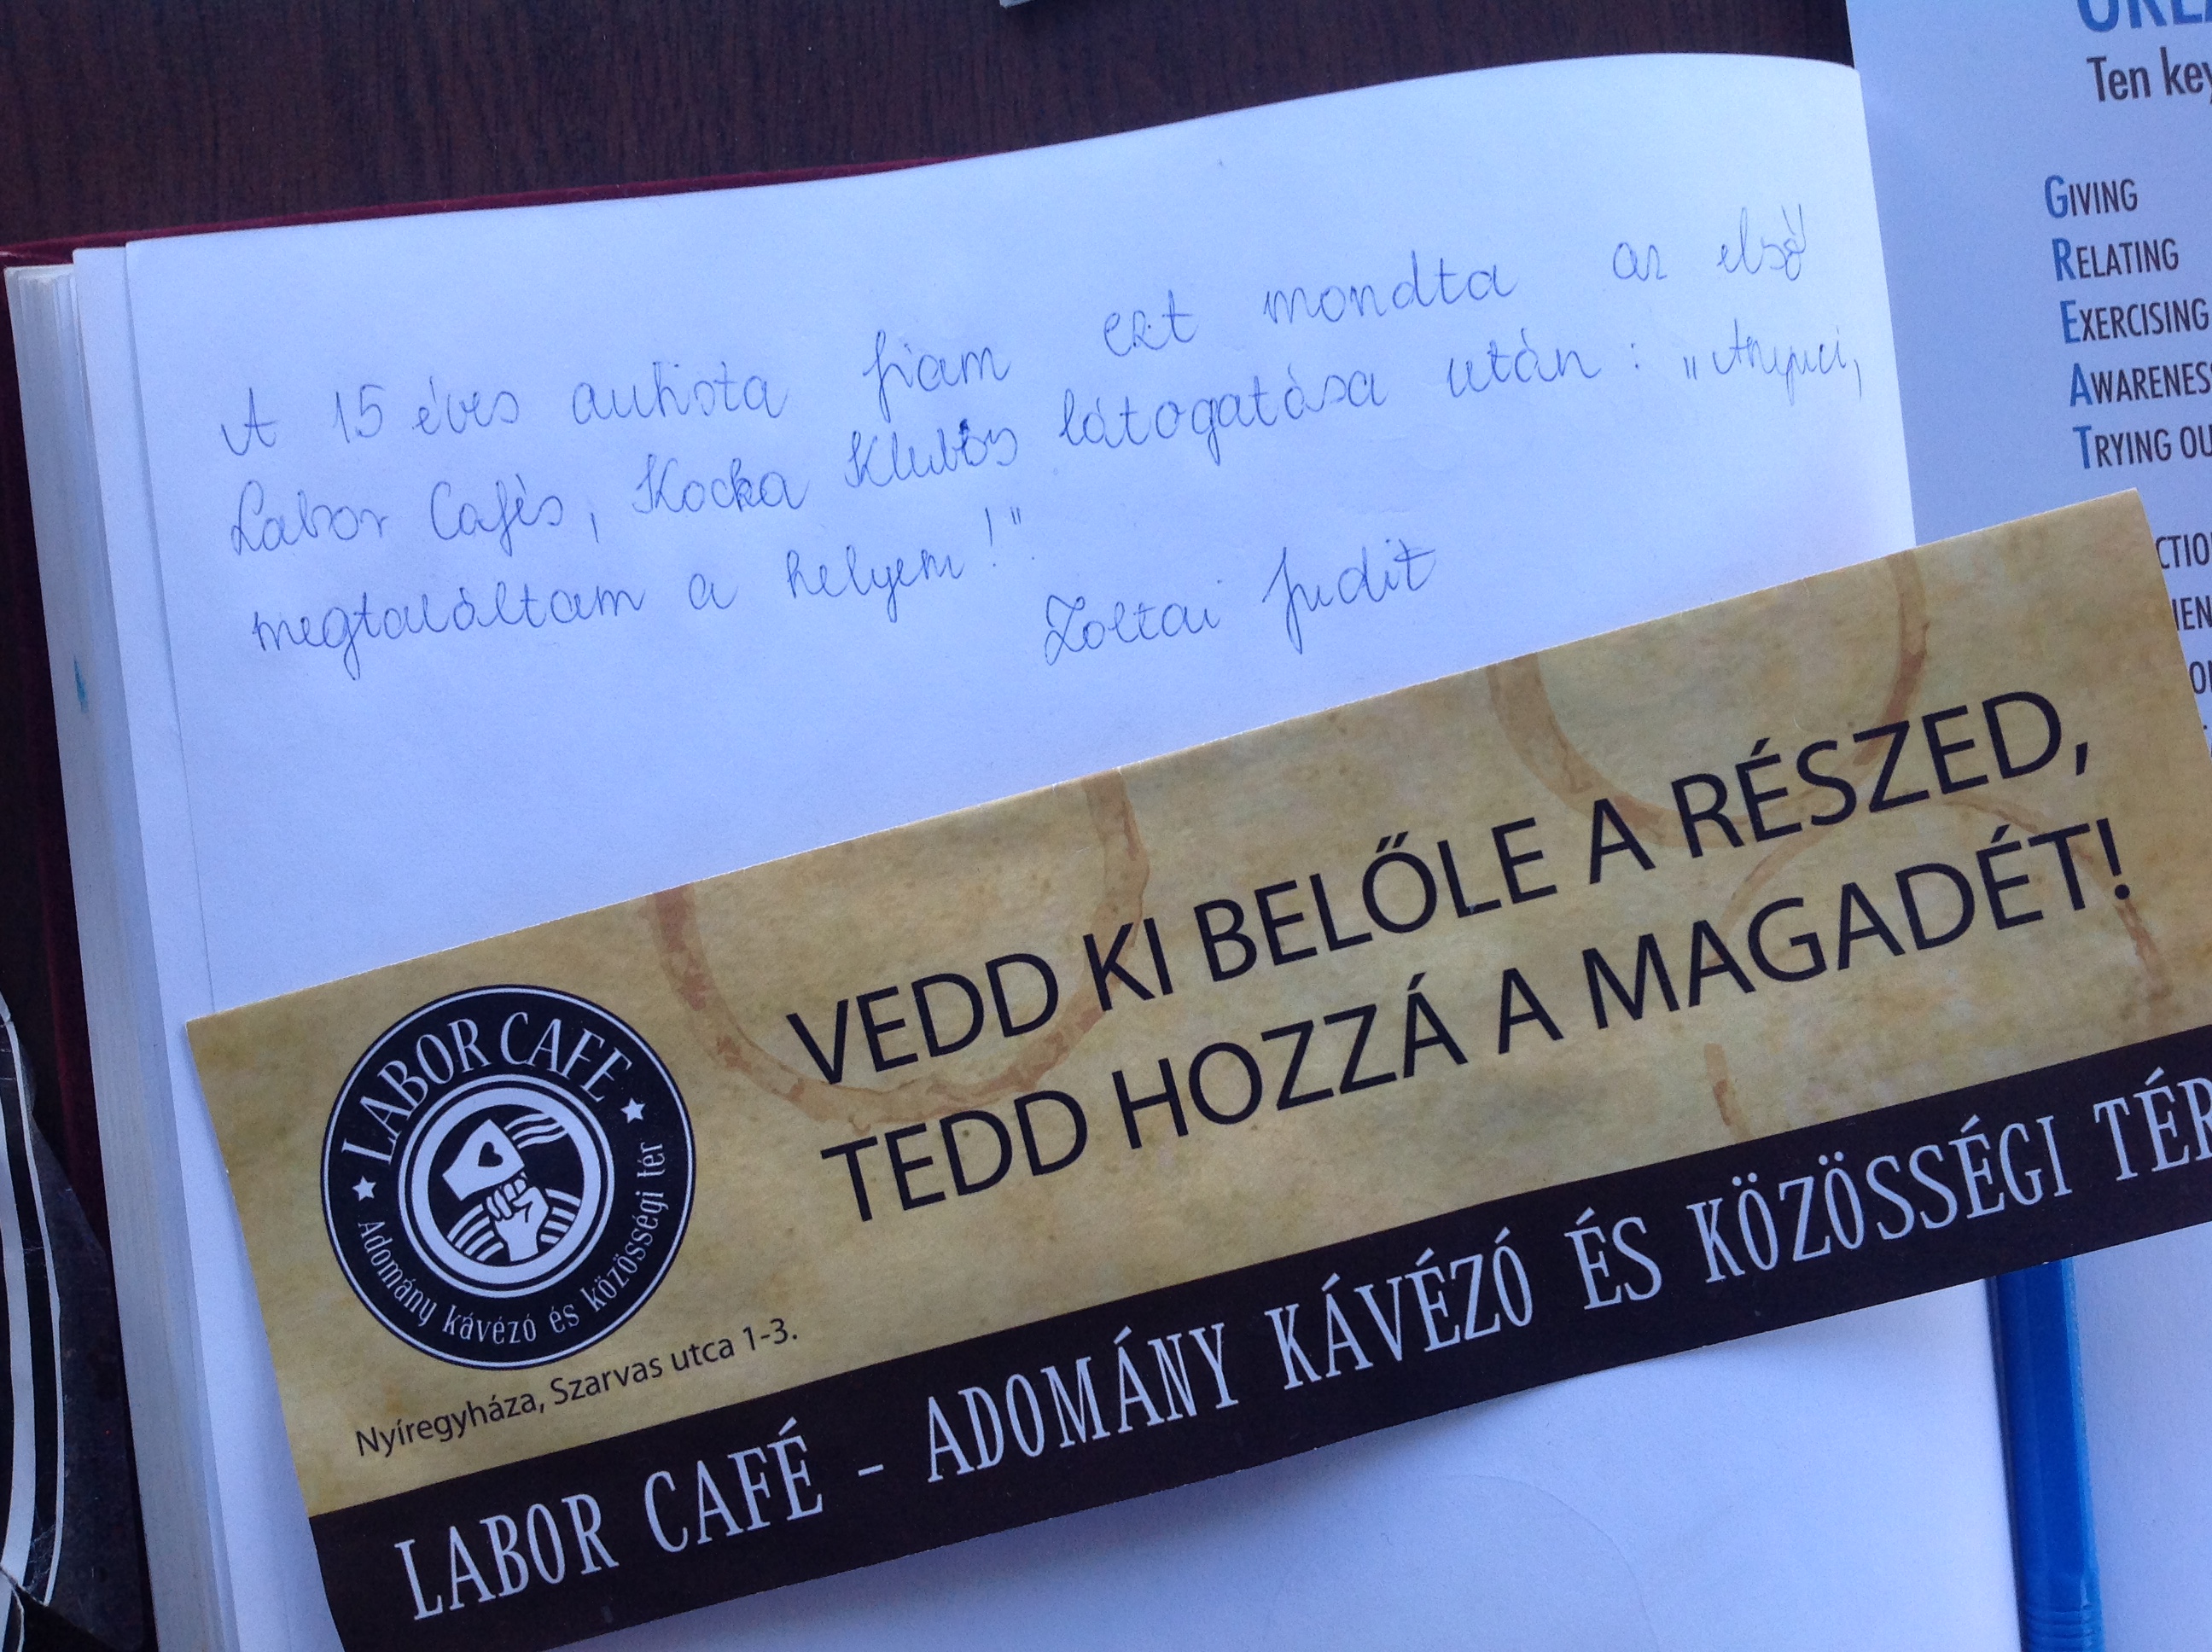 A 15 éves autista fiam ezt mondta az első
Labor Cafés, Kocka Klubos látogatása után: „Anyuci,
megtaláltam a helyem!"
Zoltai Judit
VEDD KI BELŐLE A RÉSZED,
TEDD HOZZÁ A MAGADÉT!
LABOR CAFE
Adomány kávézó és közösségi tér
Nyíregyháza, Szarvas utca 1-3.
LABOR CAFÉ - ADOMÁNY KÁVÉZÓ ÉS KÖZÖSSÉGI TÉR
Ten key
GIVING
RELATING
EXERCISING
AWARENESS
TRYING OU